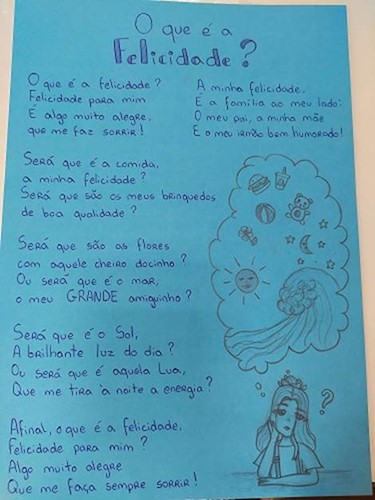 O que é a
Felicidade?
O que é a felicidade?
Felicidade para mim
É algo muito alegre,
que me faz sorrir!
Será que é a comida,
a minha felicidade?
Será que são os meus brinquedos
de boa qualidade?
Será que são as flores
com aquele cheiro docinho?
Ou será que é o mar,
o meu GRANDE amiguinho?
Será que é o Sol,
A brilhante luz do dia?
Ou será que é aquela Lua,
Que me tira à noite a energia?
Afinal, o que é a felicidade,
Felicidade para mim?
Algo muito alegre
Que me faça sempre sorrir!
A minha felicidade,
É a família ao meu lado:
O meu pai, a minha mãe
E o meu irmão bem humorado!